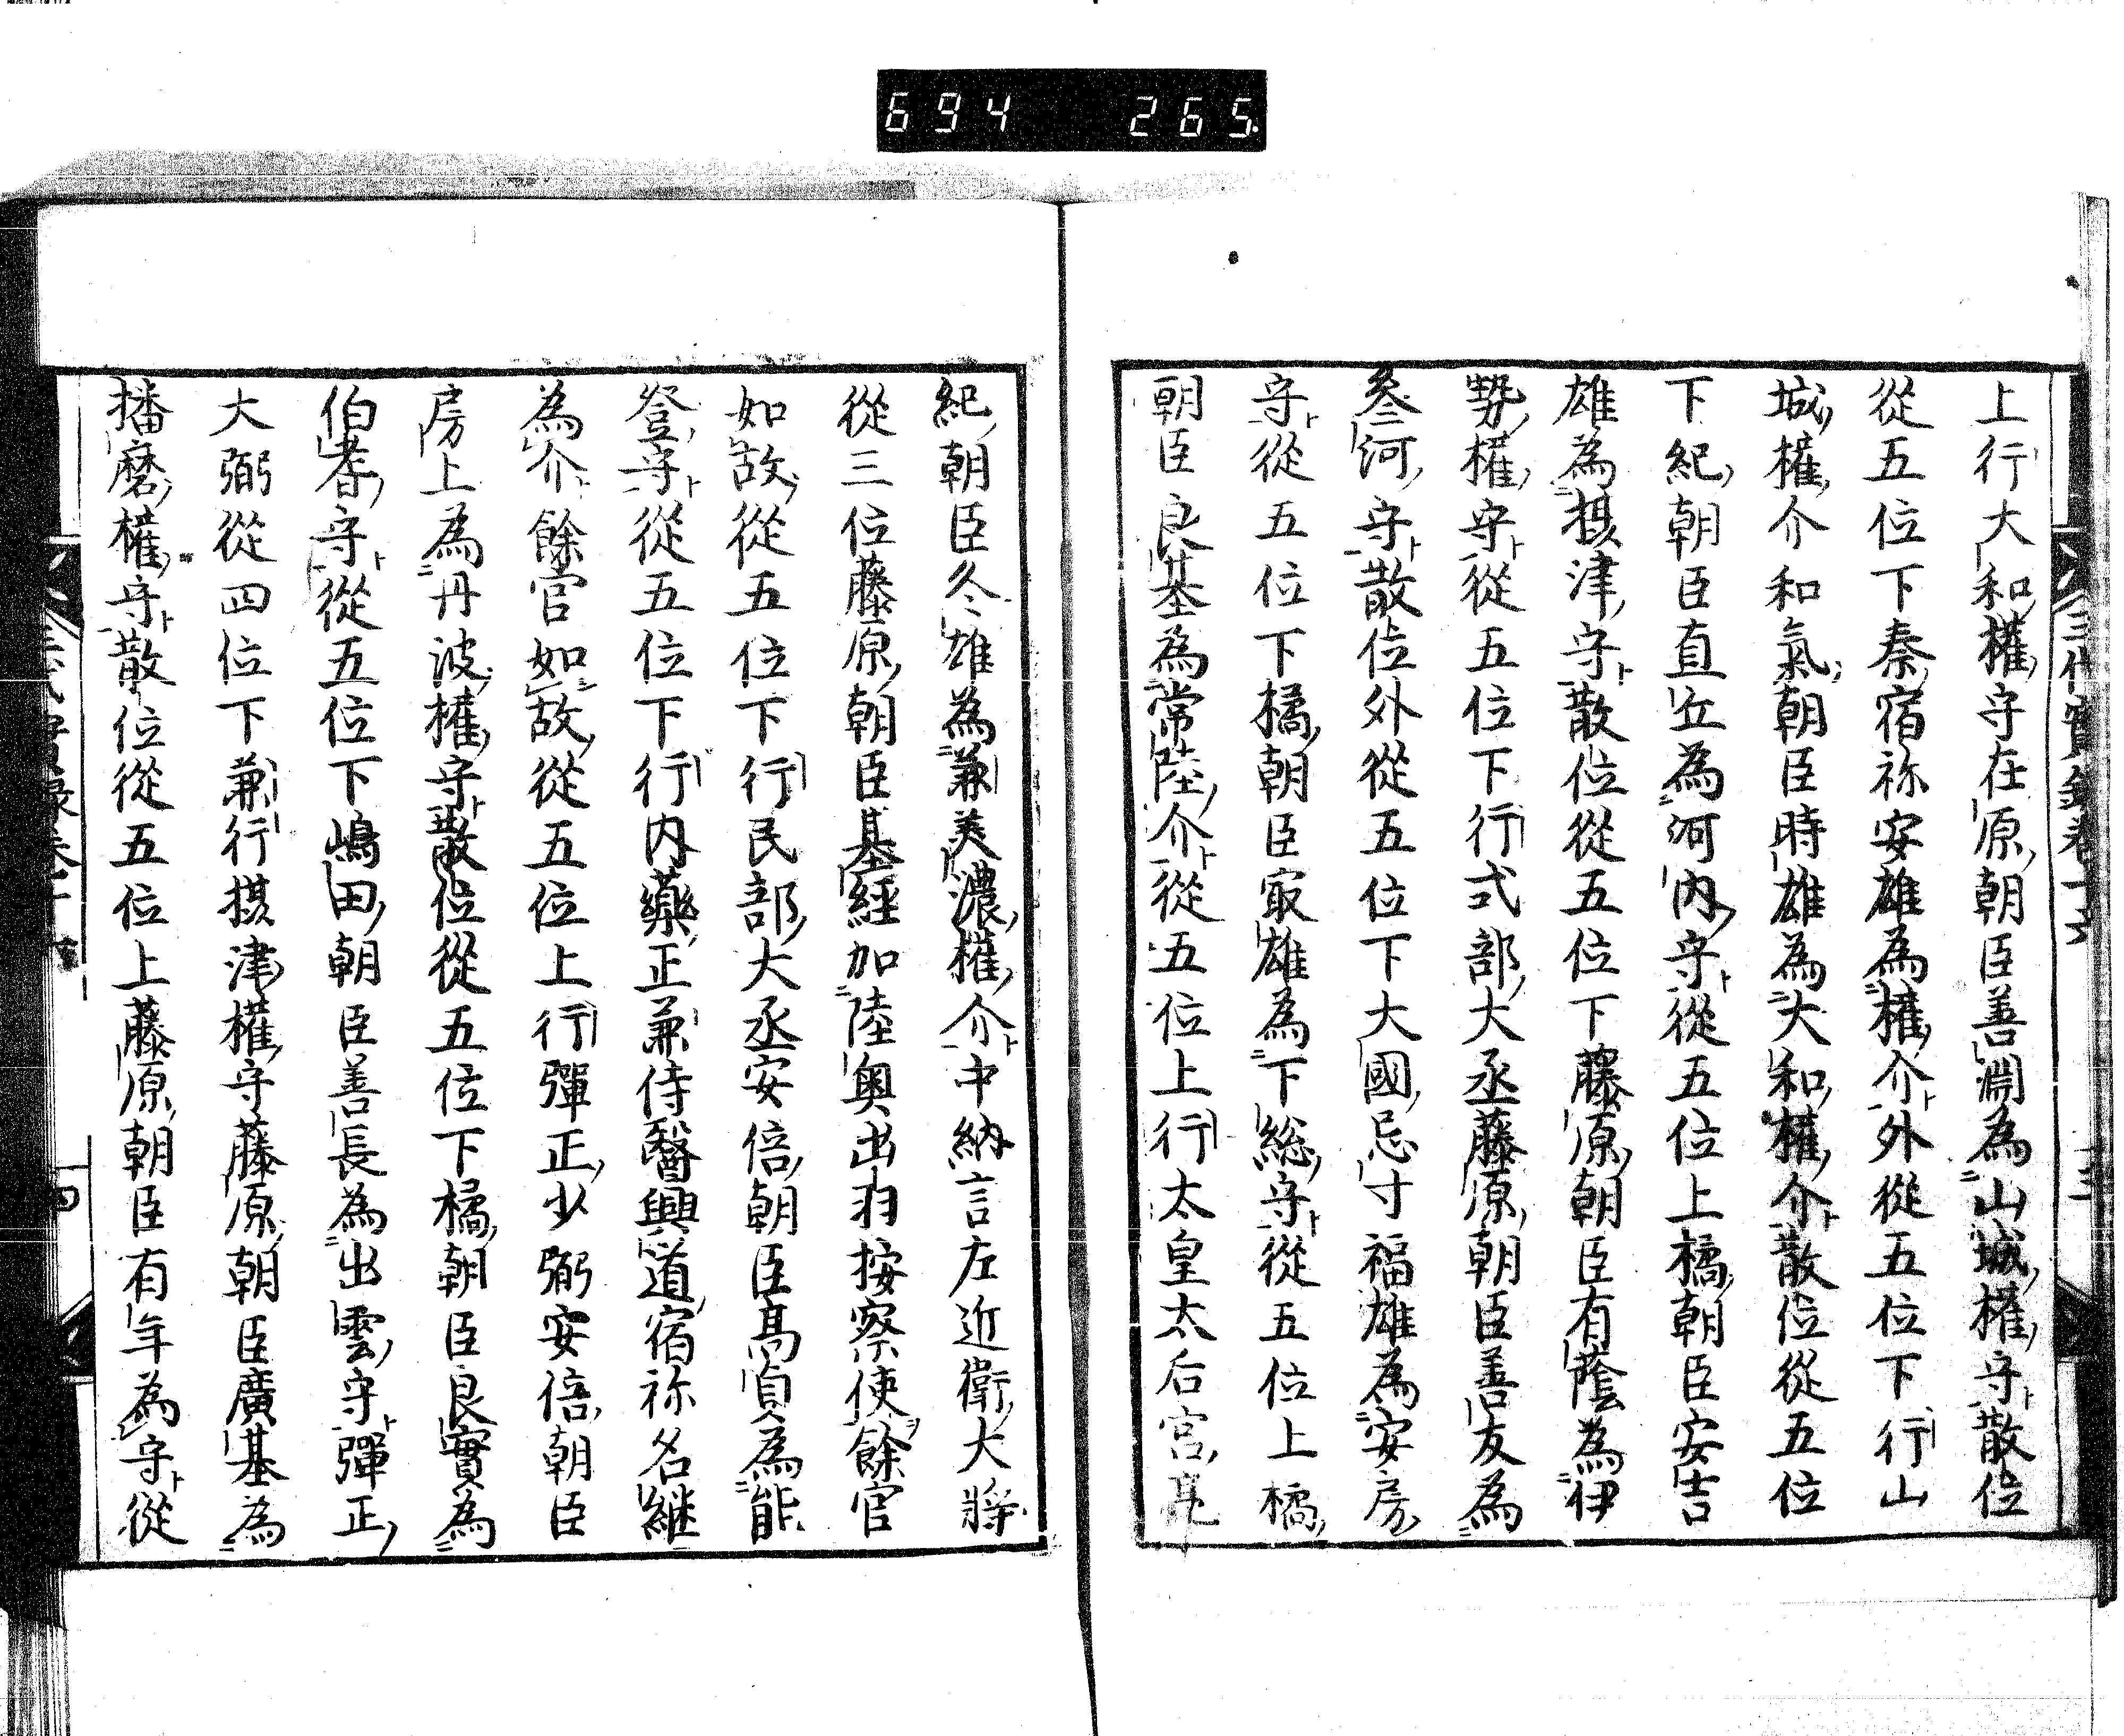 694 265
上行大和權守在原朝臣善淵為山城權守散位
從五位下秦宿祢安雄為權介外從五位下行山
城權介和氣朝臣時雄為大和權介散位從五位
下紀朝臣直丘為河内守從五位上橘朝臣安吉
雄為摂津守散位從五位下藤原朝臣有蔭為伊
勢權守從五位下行式部大丞藤原朝臣善友為
叄河守散位外從五位下大國忌寸福雄為安房
守從五位下橘朝臣㝡雄為下総守從五位上橘
朝臣良基為常陸介從五位上行太皇太后宮亮
紀朝臣冬雄為兼美濃權介中納言左近衛大將
從三位藤原朝臣基經加陸奥出羽按察使餘官
如故從五位下行民部大丞安倍朝臣髙貞為能
登守從五位下行内藥正兼侍醫興道宿祢名継
為介餘官如故從五位上行彈正少弼安倍朝臣
房上為丹波權守散位從五位下橘朝臣良實為
伯耆守從五位下嶋田朝臣善長為出雲守彈正
大弼從四位下兼行摂津權守藤原朝臣廣基為
播磨權守散位從五位上藤原朝臣有年為守從